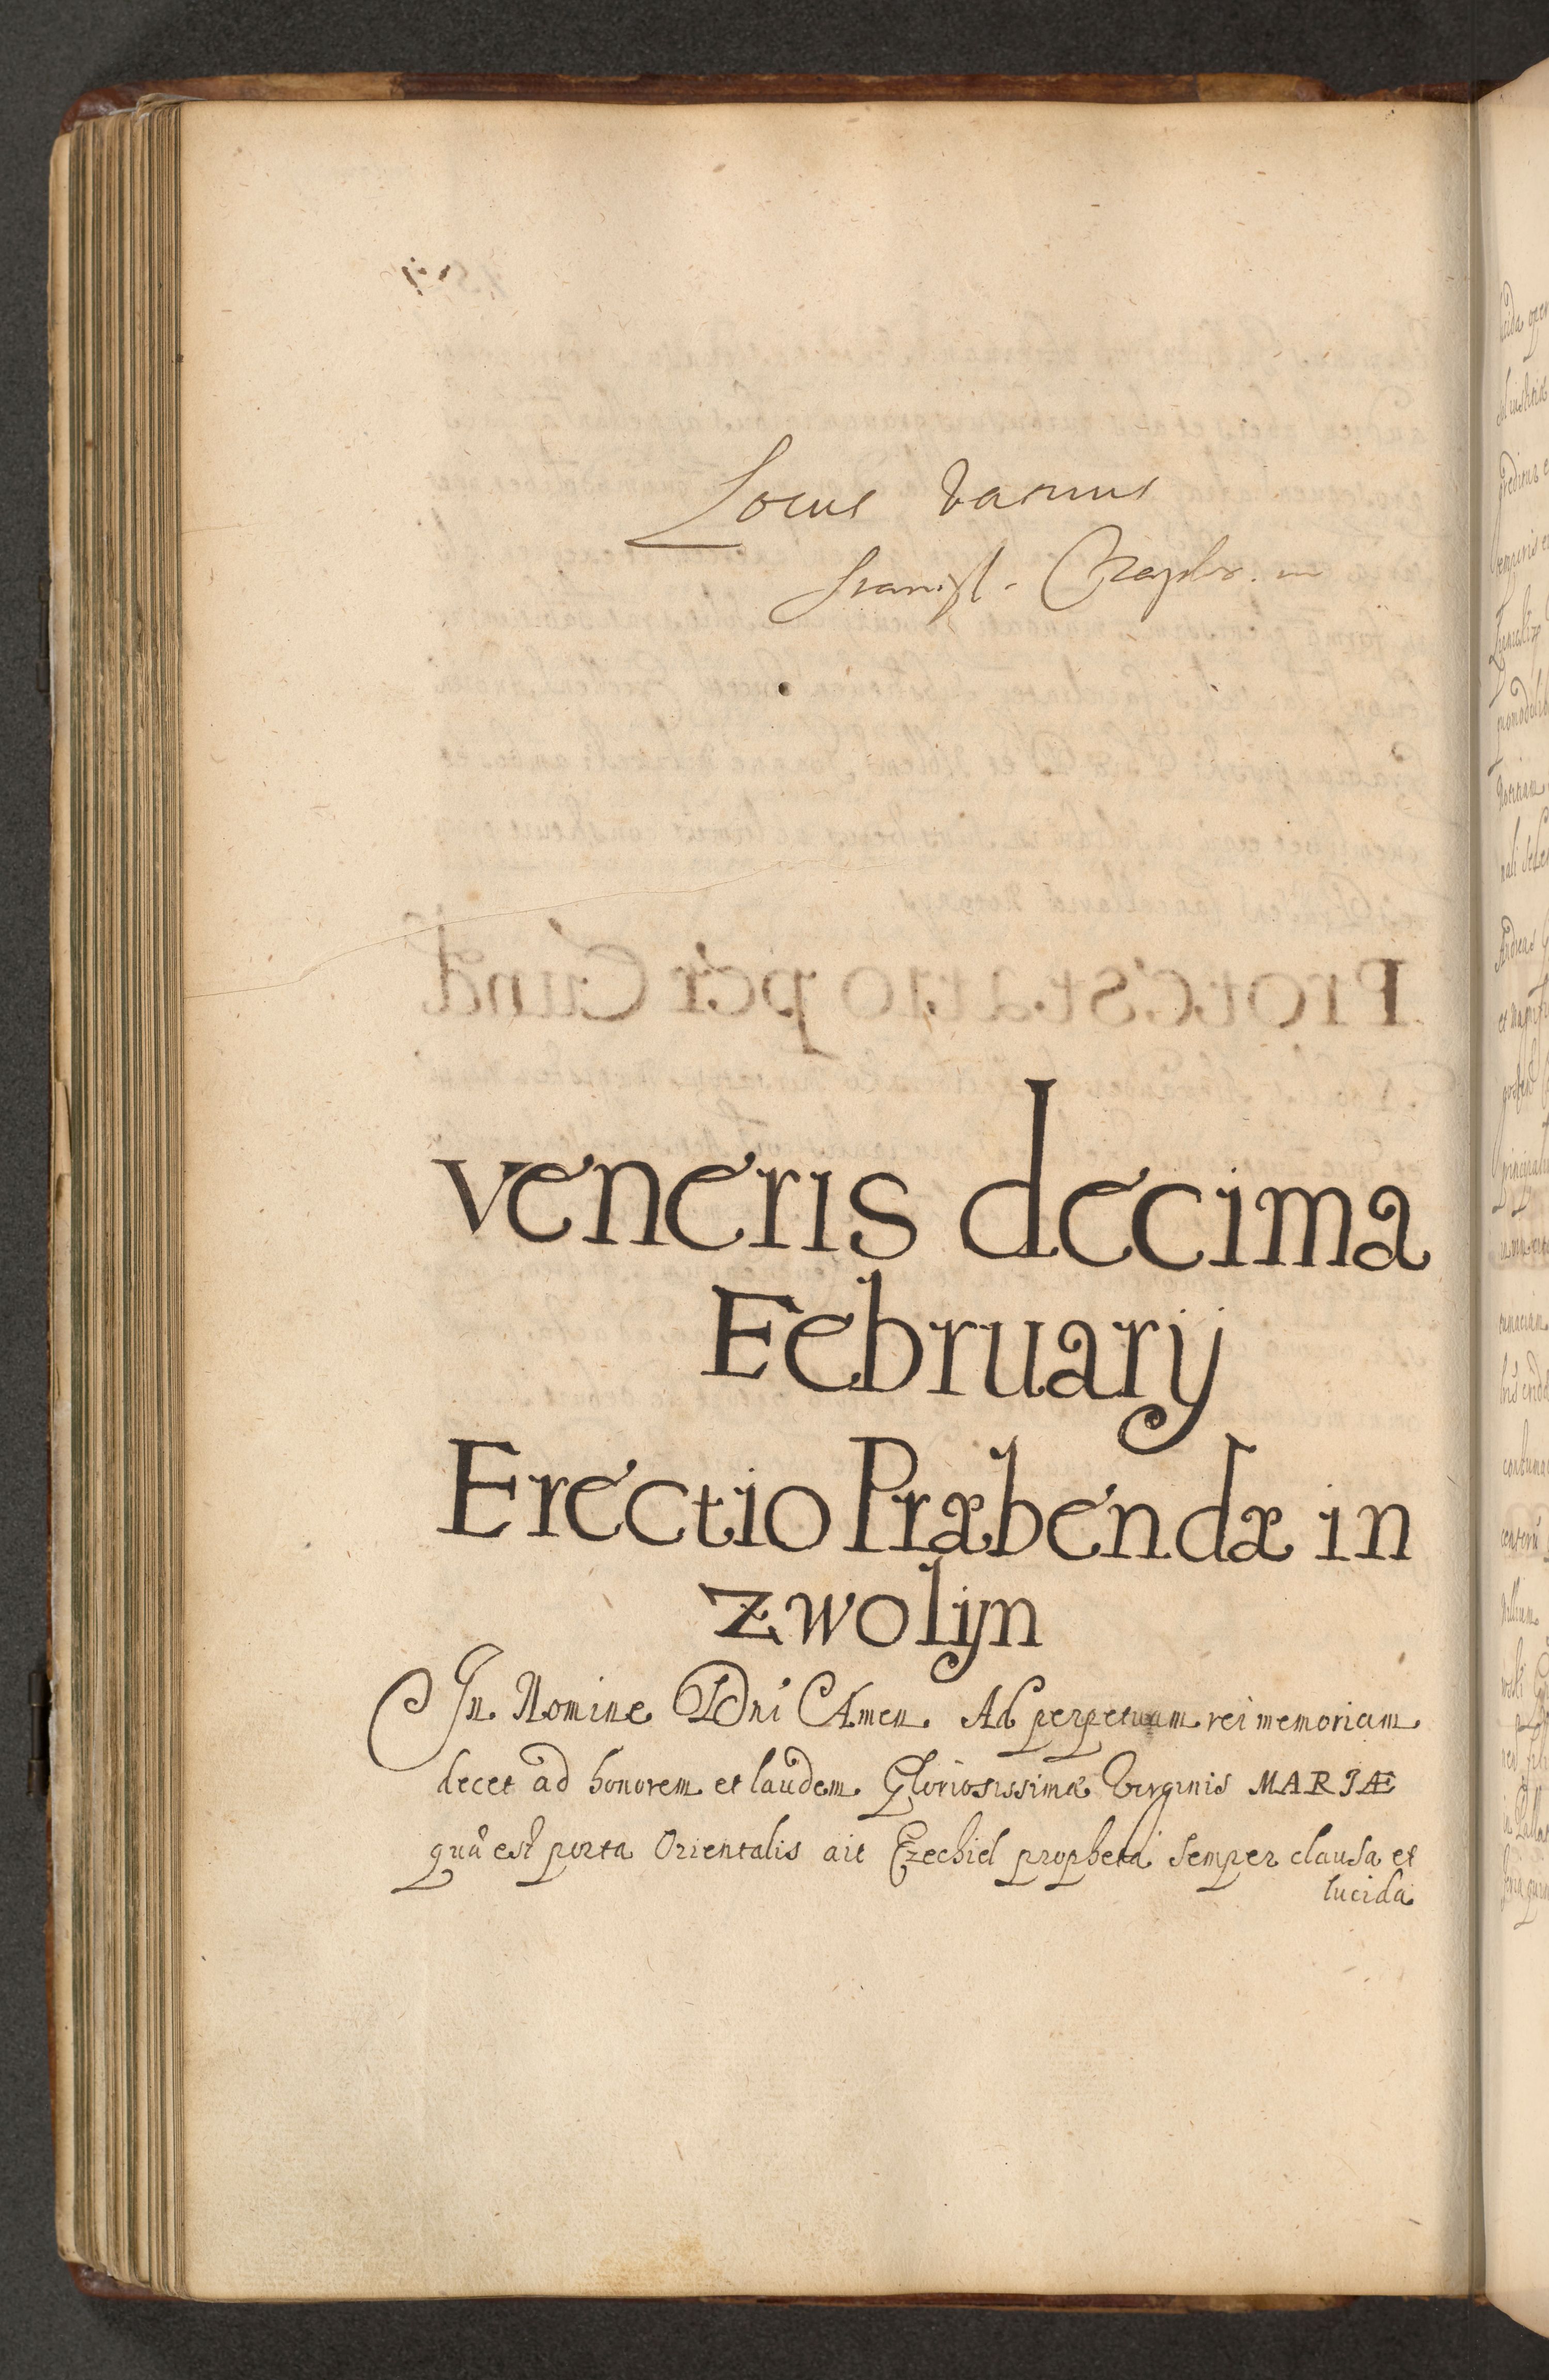 Locus vacuus
Stanisl.
veneris decima
February
Erectio Præbendæ in
zwolijn
In Nomine Dni Amen. Ad perpetuam rei memoriam
decet ad honorem et laudem Gloriosissimæ Virginis MARIÆ
quæ est porta Orientalis ait Ezechiel propheta semper clausa et
lucida